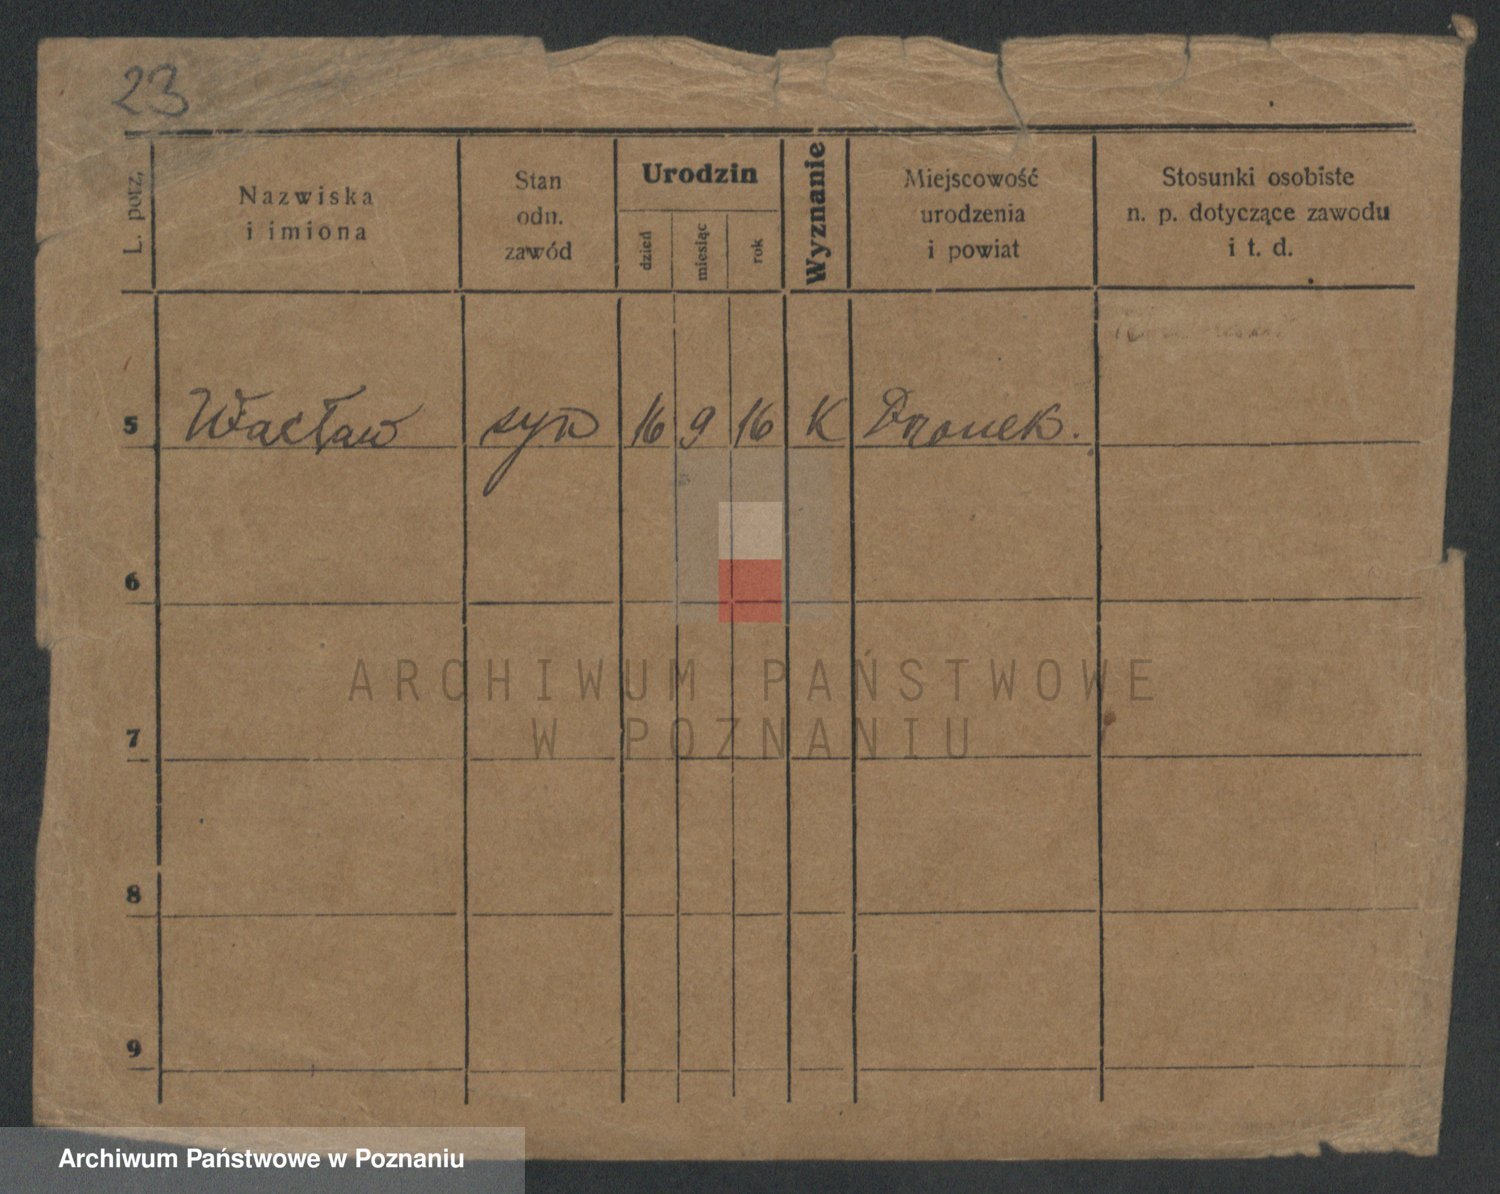 23
L. porz,
Nazwiska
i imiona
Stan
odn.
zawód
Urodzin
dzień
miesiąc
rok
Wyznanie
Miejscowość
urodzenia
i powiat
Stosunki osobiste
n. p. dotyczące zawodu
i t. d.
5 Wacław syn 16 9 16 K
6
ARCHIWUM PAŃSTWOWE
W POZNANIU
7
8
9
Archiwum Państwowe w Poznaniu